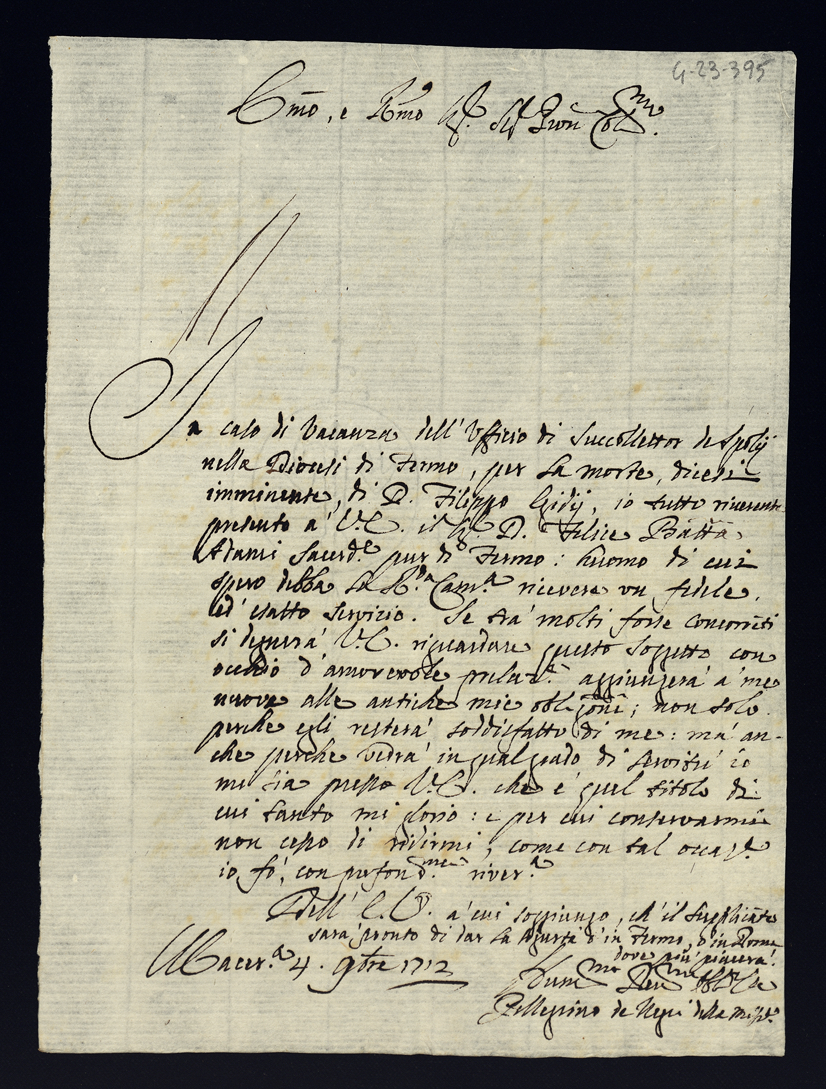 G-23-395
Emo, e Rmo Sig. Sig. Pron Colmo.
In caso di Vacanza dell'Ufficio di Succollettor de Spolij
nella Diocesi di Fermo, per la morte, dicesi
imminente, di D. Filippo Egidij, io tutto riverente
presento a' V.E. il Sig. D. Felice Batta
Adami Sacerd.e pur di Fermo: huomo di cui
spero debba la R.da Cam.a ricevere un fidele,
ed' esatto servizio. Se tra' molti forse concorrēti
si degnerà V.E. riguardare questo soggetto con
occhio d'amorevole aggiungerà a' me
nuove alle antiche mie oblig.oni; non solo
perche egli resterà soddisfatto di me: ma' an-
che perche vedrà in qual grado di servitù io
mi sia presso V.E. che è quel titolo di
cui tanto mi glorio: e per cui conservarmi
non cesso di ridirmi, come con tal occas.e
io fo', con profond.ma river.a
Dell' E.V. a' cui soggiungo, ch' il supplicāte
sarà pronto di dar la sigurtà ò in Fermo, ò in Roma
dove più piacerà.
Macer.a 4. 9bre 1712
Hum.mo Dev.mo
Pellegrino de Negri della